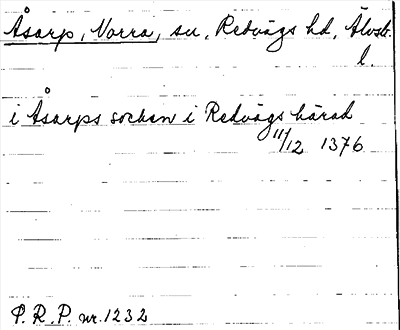 Åsarp, Norra, sn, Redvägs hd, Älvsb.
l.
i Åsarps sochen i Redvägs härad
11/12 1376
P. R. P. nr. 1232